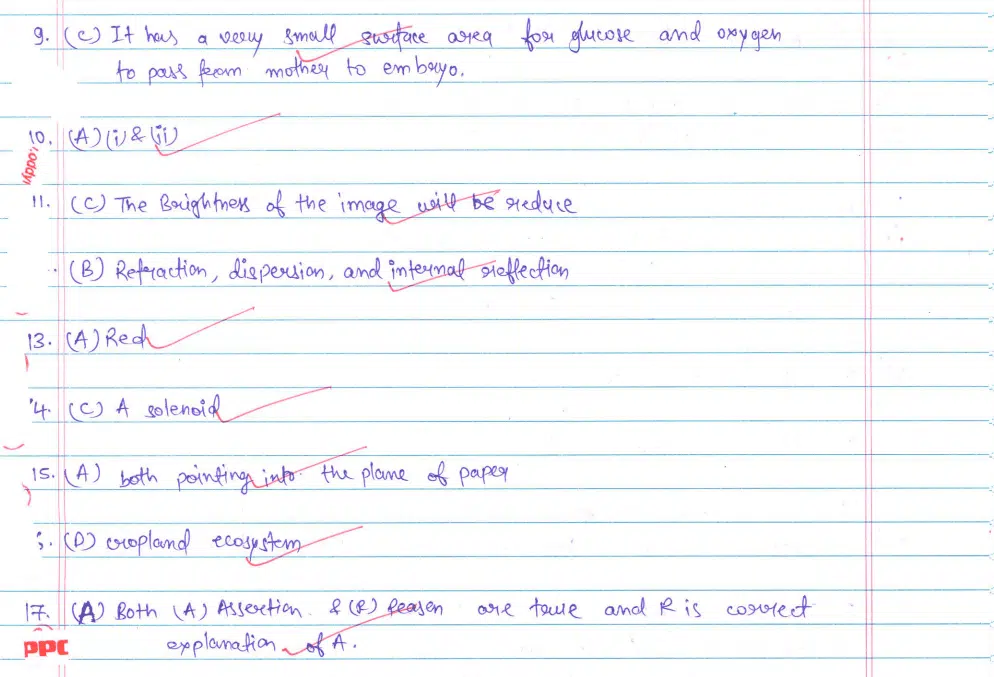 9. (C) It has a very small surface area for glucose and oxygen
to pass from mother to embryo.
10. (A) (i) & (ii)
11. (C) The Brightness of the image will be reduce
(B) Refraction, dispersion, and internal reflection
13. (A) Red
4. (C) A solenoid
15. (A) both pointing into the plane of paper
(D) cropland ecosystem
17. (A) Both (A) Assertion & (R) Reasen are true and R is correct
explanation of A.
PPC